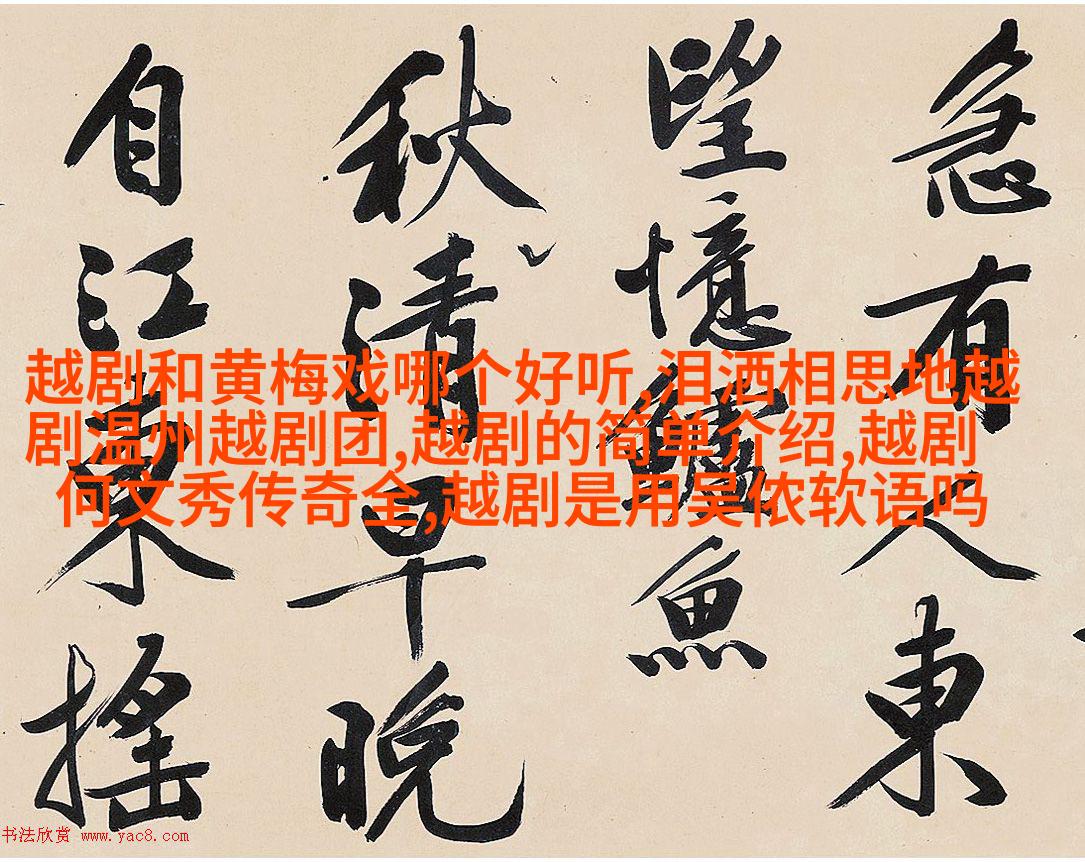 急有人東
望憶鱸魚
秋清早晚
自江東搖
越剧和黄梅戏哪个好听,泪洒相思地越
剧温州越剧团,越剧的简单介绍,越剧
何文秀传奇全,越剧是用吴侬软语吗
书法欣赏 www.yac8.com